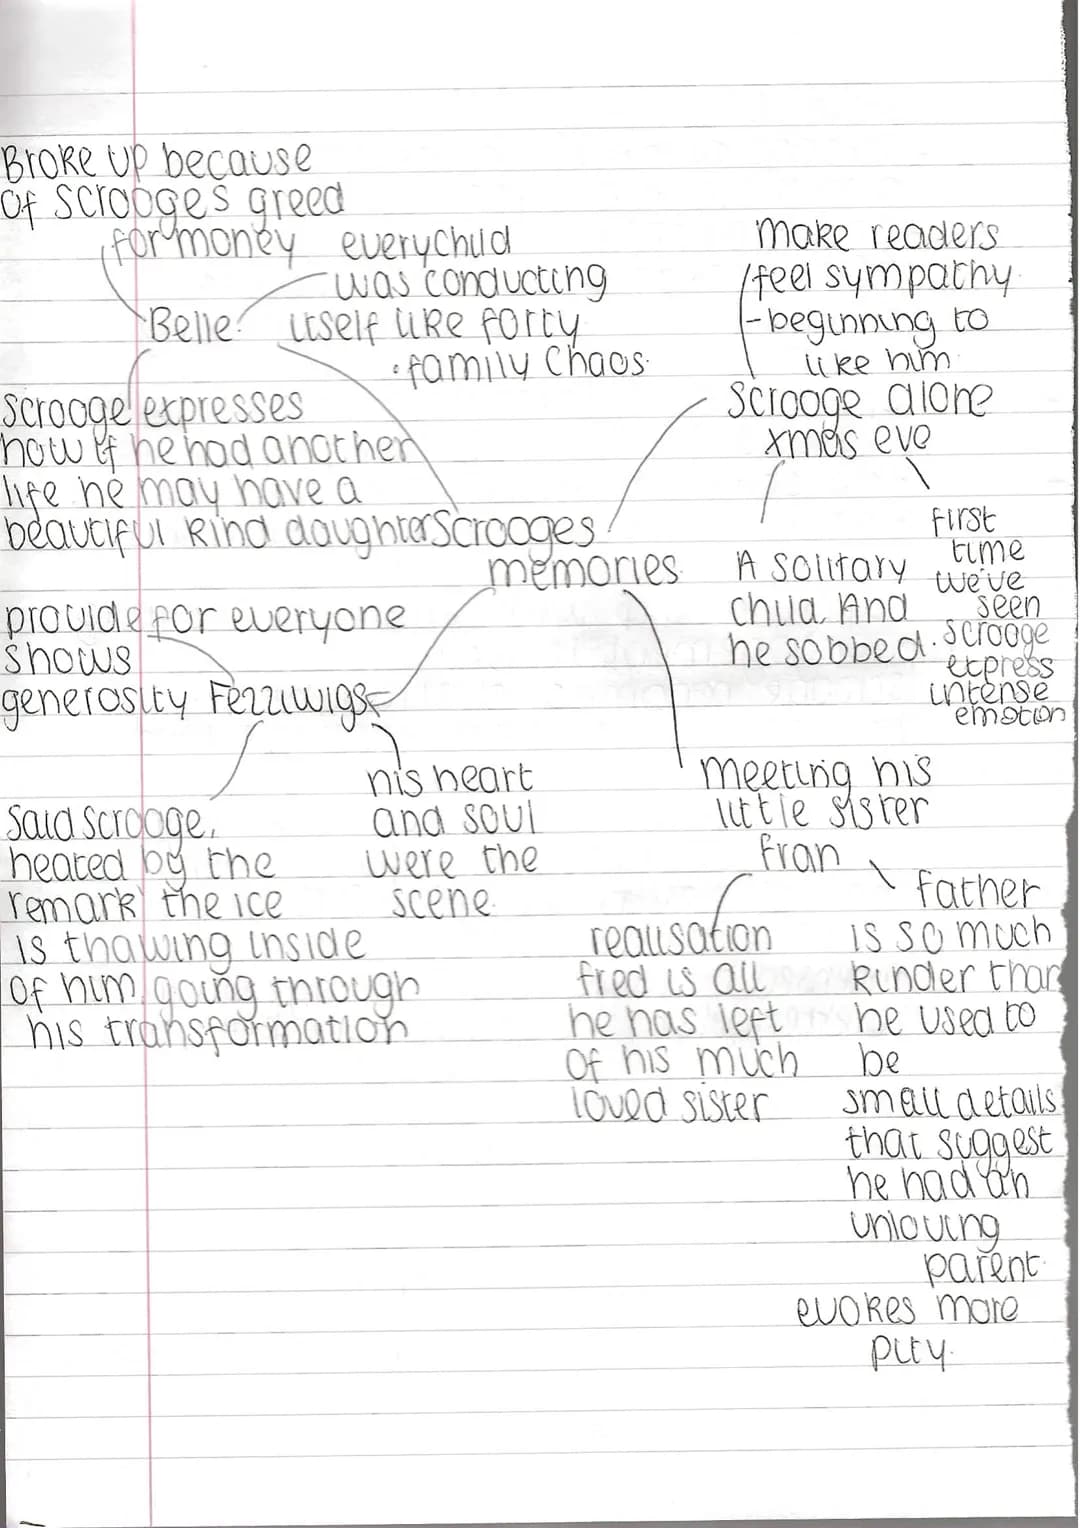 Broke up because
of scrooges greed
for money
everychild
was conducting
itself like forty
• family Chaos.
Belle
scrooge expresses
how if he had another
life he may have a
beautiful kind daughter
make readers
feel sympathy
- beginning to
like him
scrooge alone
xmas eve
A solitary
child. And
he sobbed.
first
time
we've
seen
scrooge
express
intense
emotion
Scrooges
memories
provide for everyone
shows
generosity
Fezziwigs
said scrooge,
heated by the
remark the ice
is thawing inside
of him, going through
his transformation
his heart
and soul
were the
scene.
meeting his
little sister
fran
realisation
fred is all
he has left
of his much
loved sister
father
is so much
kinder than
he used to
be
small details
that suggest
he had an
unloving
parent.
evokes more
pity.